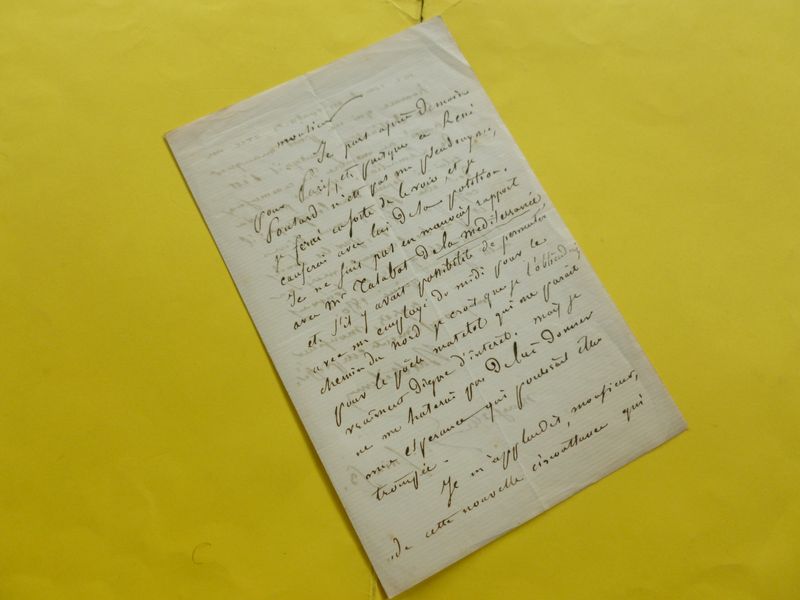 monsieur
Je pars après demain
pour Paris, et, puisque ce René
Ponsard n'est pas un pseudonyme,
je ferai en sorte de le voir et je
causerai avec lui de sa position.
Je ne suis pas en mauvais rapport
avec Mr Talabot de la méditerranée
et s'il y avait possibilité de permuter
avec un employé du midi pour le
chemin du nord je crois que je l'obtiendrais
pour le poète matelot qui me parait
vraiment digne d'intérêt. mais je
ne me haterai pas de lui donner
une esperance qui pourrait être
trompée.
Je m'applaudis, monsieur,
de cette nouvelle circonstance qui